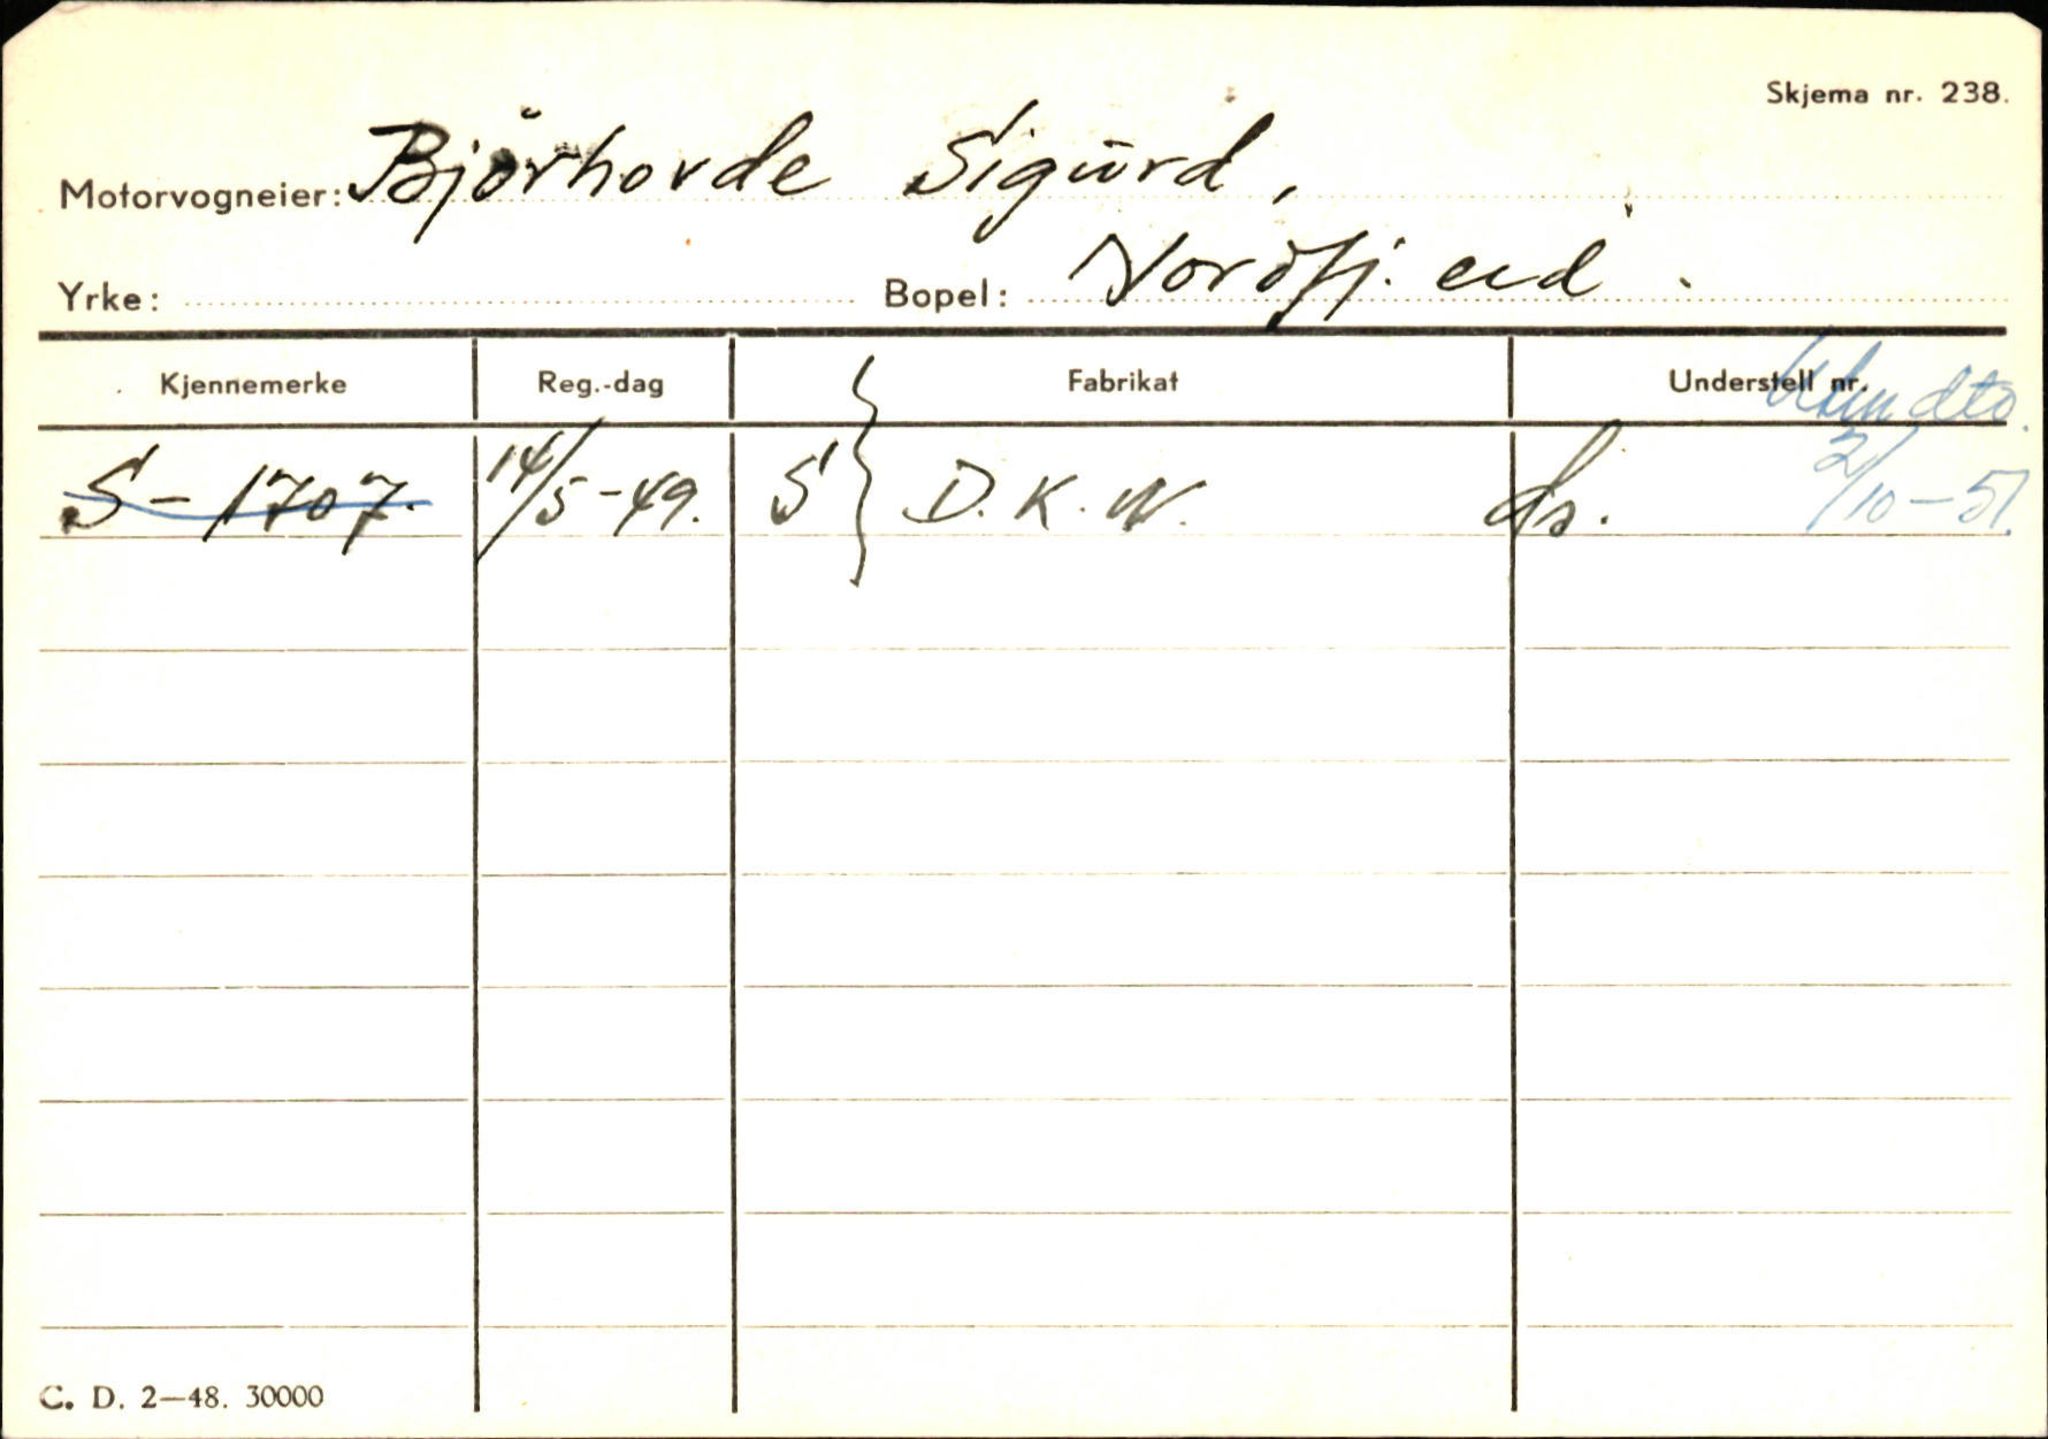 Skjema nr. 238.
Motorvogneier: Björhovde Sigurd,
Yrke: Bopel: Nordfj. eid.
Kjennemerke Reg.-dag Fabrikat Understell nr.
S-1707. 14/5-49. S } D.K.W. 2/10-51.
C. D. 2—48. 30000